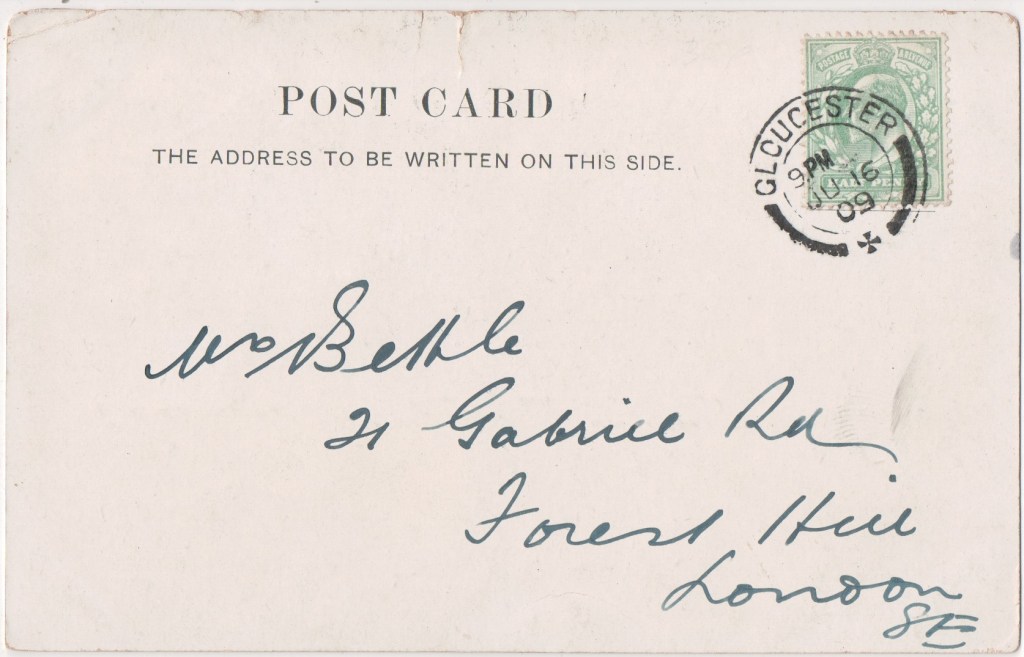 POST CARD
THE ADDRESS TO BE WRITTEN ON THIS SIDE.
POSTAGE & REVENUE
GLOUCESTER
9 PM
JU 16
09
Mrs Bethle
21 Gabriel Rd
Forest Hill
London
SE